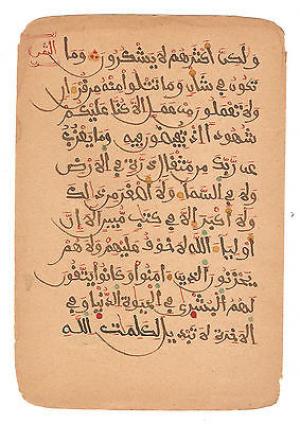 الثمن
ولكن أكثرهم لا يشكرون وما
تكون في شأن وما تتلوا منه من قرءان
ولا تعملون من عمل إلا كنا عليكم
شهودا إذ تفيضون فيه وما يعزب
عن ربك من مثقال ذرة في الأرض
ولا في السماء ولا أصغر من ذلك
ولا أكبر إلا في كتب مبين ألا إن
أولياء الله لا خوف عليهم ولا هم
يحزنون الذين ءامنوا وكانوا يتقون
لهم البشرى في الحيوة الدنيا وفي
الاخرة لا تبديل لكلمت الله